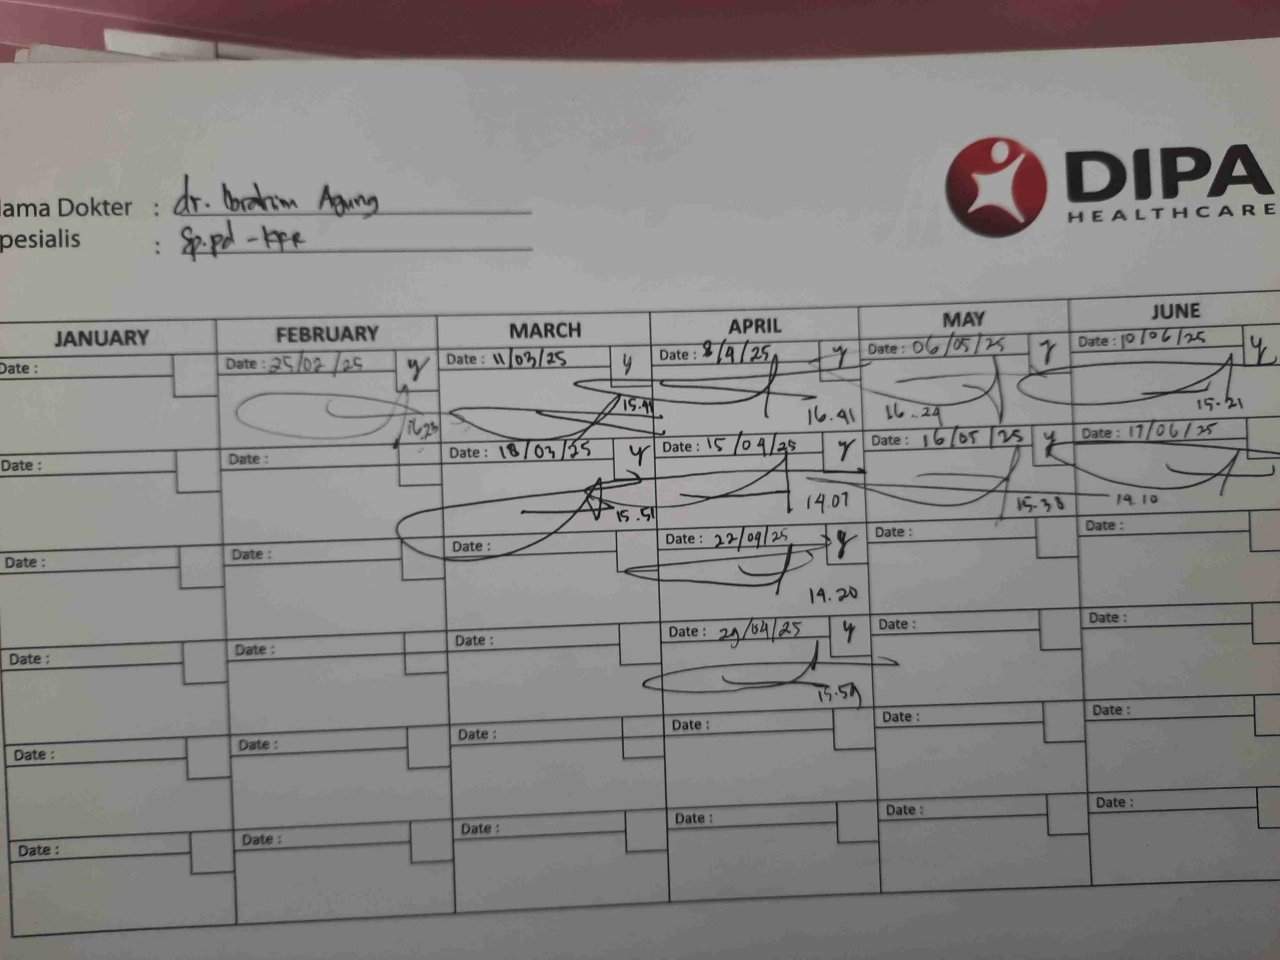 DIPA
HEALTHCARE
ama Dokter : dr. Ibrahim Agung
pesialis : Sp.pd - KPR
JANUARY FEBRUARY MARCH APRIL MAY JUNE
Date : Date : 25/02/25 y Date : 11/03/25 y Date : 8/4/25 y Date : 06/05/25 y Date : 10/06/25 y
16.23 15.41 16.41 16.29 15.21
Date : Date : Date : 18/03/25 y Date : 15/04/25 y Date : 16/05/25 y Date : 17/06/25
15.51 14.07 15.38 14.10
Date : Date : Date : Date : 22/04/25 y Date : Date :
14.20
Date : Date : Date : Date : 29/04/25 y Date : Date :
15.59
Date : Date : Date : Date : Date : Date :
Date : Date : Date : Date : Date : Date :